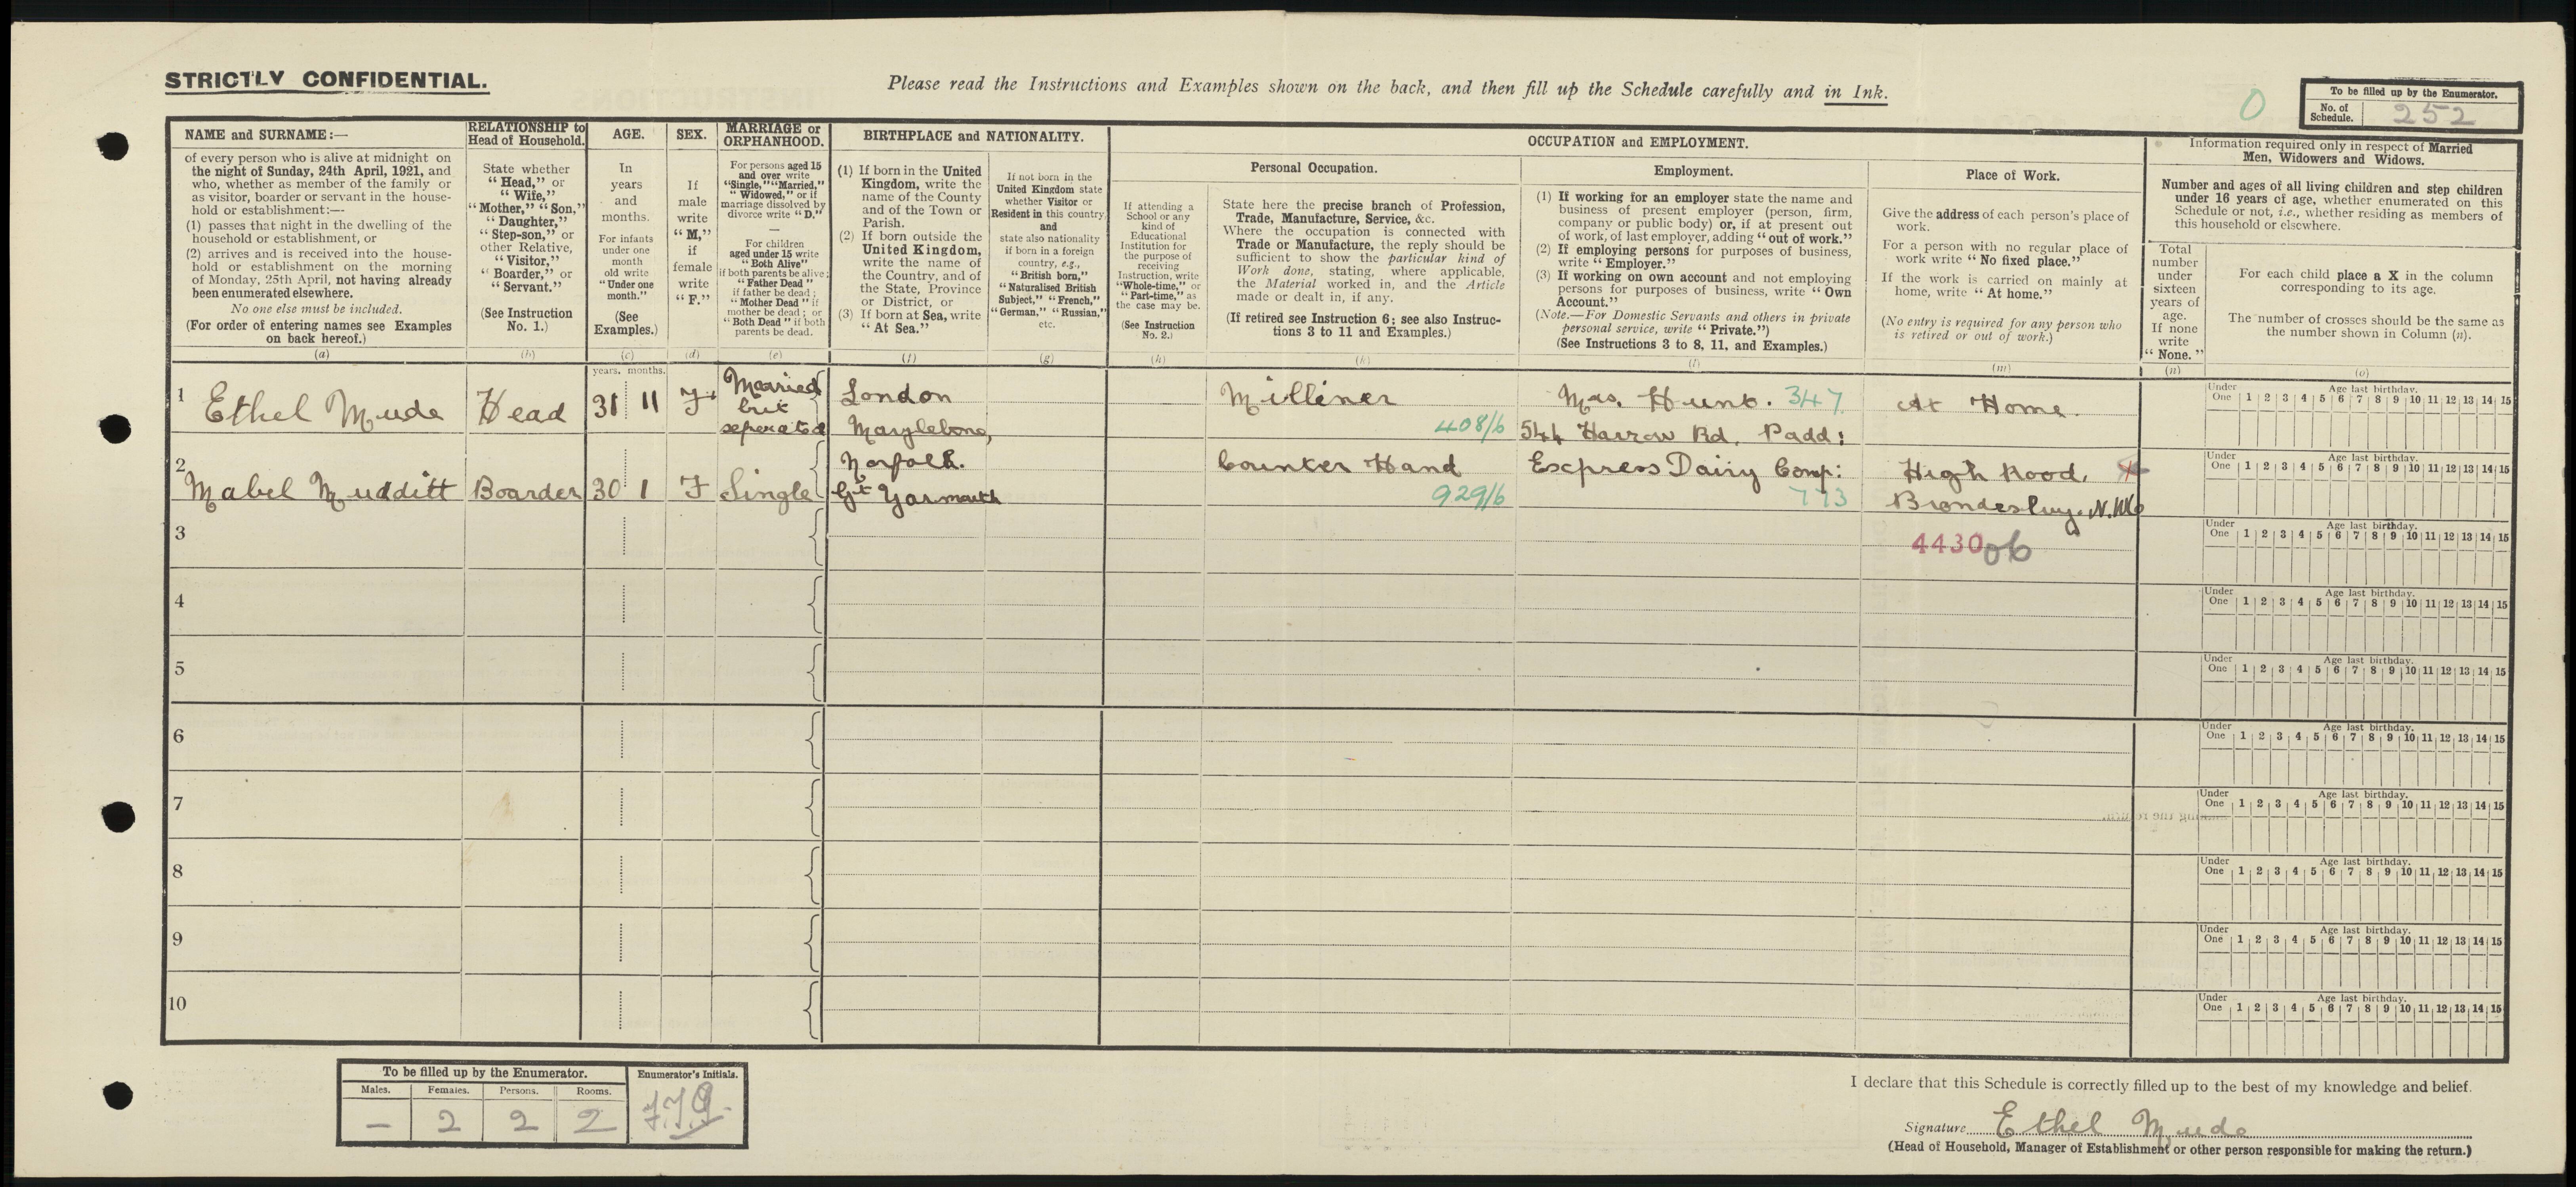 STRICTLY CONFIDENTIAL.
Please read the Instructions and Examples shown on the back, and then fill up the Schedule carefully and in Ink.
0
To be filled up by the Enumerator.
No. of Schedule. 252
NAME and SURNAME:—
of every person who is alive at midnight on
the night of Sunday, 24th April, 1921, and
who, whether as member of the family or
as visitor, boarder or servant in the house-
hold or establishment:—
(1) passes that night in the dwelling of the
household or establishment, or
(2) arrives and is received into the house-
hold or establishment on the morning
of Monday, 25th April, not having already
been enumerated elsewhere.
No one else must be included.
(For order of entering names see Examples
on back hereof.)
(a)
RELATIONSHIP to
Head of Household.
State whether
"Head," or
"Wife,"
"Mother," "Son,"
"Daughter,"
"Step-son," or
other Relative,
"Visitor,"
"Boarder," or
"Servant."
(See Instruction
No. 1.)
(b)
AGE.
In
years
and
months.
For infants
under one
month
old write
"Under one
month."
(See
Examples.)
(c)
SEX.
If
male
write
"M,"
if
female
write
"F."
(d)
MARRIAGE or
ORPHANHOOD.
For persons aged 15
and over write
"Single," "Married,"
"Widowed," or if
marriage dissolved by
divorce write "D."
—
For children
aged under 15 write
"Both Alive"
if both parents be alive;
"Father Dead"
if father be dead;
"Mother Dead" if
mother be dead; or
"Both Dead" if both
parents be dead.
(e)
BIRTHPLACE and NATIONALITY.
(1) If born in the United
Kingdom, write the
name of the County
and of the Town or
Parish.
(2) If born outside the
United Kingdom,
write the name of
the Country, and of
the State, Province
or District, or
(3) If born at Sea, write
"At Sea."
(f)
If not born in the
United Kingdom state
whether Visitor or
Resident in this country,
and
state also nationality
if born in a foreign
country, e.g.,
"British born,"
"Naturalised British
Subject," "French,"
"German," "Russian,"
etc.
(g)
OCCUPATION and EMPLOYMENT.
Personal Occupation.
If attending a
School or any
kind of
Educational
Institution for
the purpose of
receiving
Instruction, write
"Whole-time," or
"Part-time," as
the case may be.
(See Instruction
No. 2.)
(h)
State here the precise branch of Profession,
Trade, Manufacture, Service, &c.
Where the occupation is connected with
Trade or Manufacture, the reply should be
sufficient to show the particular kind of
Work done, stating, where applicable,
the Material worked in, and the Article
made or dealt in, if any.
(If retired see Instruction 6; see also Instruc-
tions 3 to 11 and Examples.)
(k)
Employment.
(1) If working for an employer state the name and
business of present employer (person, firm,
company or public body) or, if at present out
of work, of last employer, adding "out of work."
(2) If employing persons for purposes of business,
write "Employer."
(3) If working on own account and not employing
persons for purposes of business, write "Own
Account."
(Note.—For Domestic Servants and others in private
personal service, write "Private.")
(See Instructions 3 to 8, 11, and Examples.)
(l)
Place of Work.
Give the address of each person's place of
work.
For a person with no regular place of
work write "No fixed place."
If the work is carried on mainly at
home, write "At home."
(No entry is required for any person who
is retired or out of work.)
(m)
Information required only in respect of Married
Men, Widowers and Widows.
Number and ages of all living children and step children
under 16 years of age, whether enumerated on this
Schedule or not, i.e., whether residing as members of
this household or elsewhere.
Total
number
under
sixteen
years of
age.
If none
write
"None."
(n)
For each child place a X in the column
corresponding to its age.
The number of crosses should be the same as
the number shown in Column (n).
(o)
years. months.
1 Ethel Mude Head 31 11 F Married but seperated London Marylebone, Milliner 408/6 Mrs. Hunt. 347 544 Harrow Rd. Padd: At Home.
Under One 1 2 3 4 5 6 7 8 9 10 11 12 13 14 15
Age last birthday.
2 Mabel Mudditt Boarder 30 1 F Single Norfolk. Gt Yarmouth Counter Hand 929/6 Express Dairy Comp: 773 High Road, Brondesbury. N.W6
Under One 1 2 3 4 5 6 7 8 9 10 11 12 13 14 15
Age last birthday.
3 4430 06
Under One 1 2 3 4 5 6 7 8 9 10 11 12 13 14 15
Age last birthday.
4
Under One 1 2 3 4 5 6 7 8 9 10 11 12 13 14 15
Age last birthday.
5
Under One 1 2 3 4 5 6 7 8 9 10 11 12 13 14 15
Age last birthday.
6
Under One 1 2 3 4 5 6 7 8 9 10 11 12 13 14 15
Age last birthday.
7
Under One 1 2 3 4 5 6 7 8 9 10 11 12 13 14 15
Age last birthday.
8
Under One 1 2 3 4 5 6 7 8 9 10 11 12 13 14 15
Age last birthday.
9
Under One 1 2 3 4 5 6 7 8 9 10 11 12 13 14 15
Age last birthday.
10
Under One 1 2 3 4 5 6 7 8 9 10 11 12 13 14 15
Age last birthday.
To be filled up by the Enumerator.
Males. Females. Persons. Rooms.
— 2 2 2
Enumerator's Initials.
I declare that this Schedule is correctly filled up to the best of my knowledge and belief.
Signature Ethel Mude
(Head of Household, Manager of Establishment or other person responsible for making the return.)